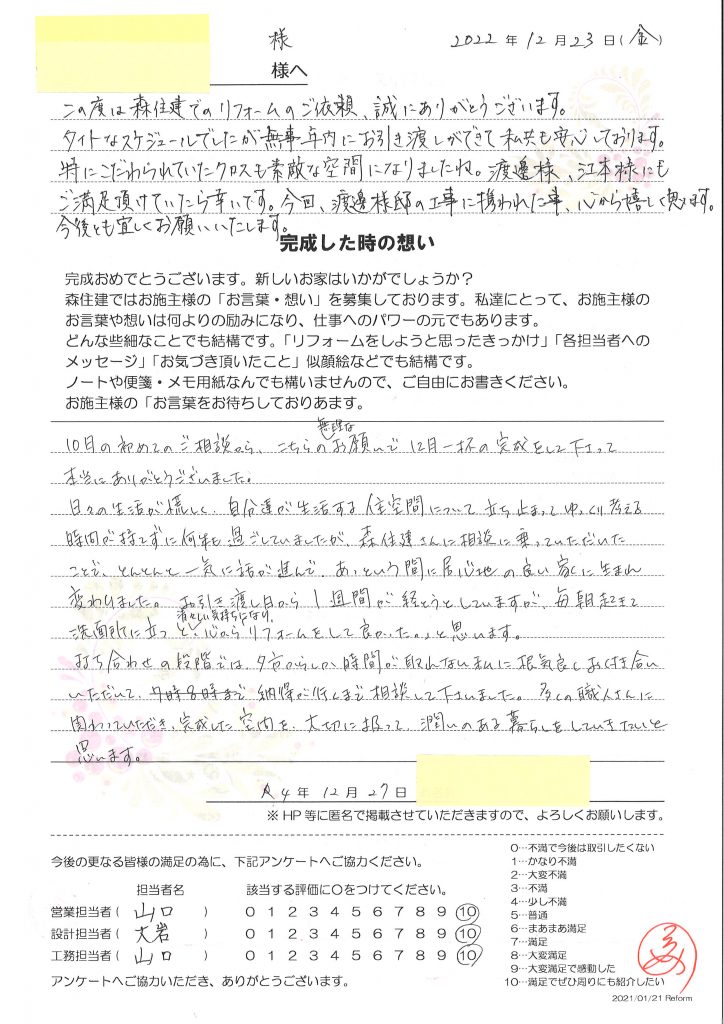 様 2022年12月23日(金)
様へ
この度は森住建でのリフォームのご依頼、誠にありがとうございます。
タイトなスケジュールでしたが無事年内にお引き渡しができて私共も安心しております。
特にこだわられていたクロスも素敵な空間になりましたね。渡邉様、江本様にも
ご満足頂けていたら幸いです。今回、渡邉様邸の工事に携われた事、心から嬉しく思います。
今後とも宜しくお願いいたします。
完成した時の想い
完成おめでとうございます。新しいお家はいかがでしょうか?
森住建ではお施主様の「お言葉・想い」を募集しております。私達にとって、お施主様の
お言葉や想いは何よりの励みになり、仕事へのパワーの元でもあります。
どんな些細なことでも結構です。「リフォームをしようと思ったきっかけ」「各担当者への
メッセージ」「お気づき頂いたこと」似顔絵などでも結構です。
ノートや便箋・メモ用紙なんでも構いませんので、ご自由にお書きください。
お施主様の「お言葉をお待ちしておりあます。
無理な
10月の初めてのご相談から、こちらのお願いで12月一杯の完成をして下さって
本当にありがとうございました。
日々の生活が慌しく、自分達が生活する住空間について立ち止まってゆっくり考える
時間が持てずに何年も過ごしていましたが、森住建さんに相談に乗っていただいた
ことで、とんとんと一気に話が進んで、あっという間に居心地の良い家に生まれ
変わりました。お引き渡し日から1週間が経とうとしていますが、毎朝起きて
清々しい気持ちになり、
洗面所に立つと、心からリフォームをして良かった。と思います。
打ち合わせの段階では、夕方からしか時間が取れない私に根気良くお付き合い
いただいて、7時8時まで納得が行くまで相談して下さいました。多くの職人さんに
関わっていただき、完成した室内を、大切に扱って、潤いのある暮らしをしていきたいと
思います。
R4年12月27日
※HP等に匿名で掲載させていただきますので、よろしくお願いします。
今後の更なる皆様の満足の為に、下記アンケートへご協力ください。
担当者名 該当する評価に○をつけてください。
営業担当者( 山口 ) 0 1 2 3 4 5 6 7 8 9 10
設計担当者( 大岩 ) 0 1 2 3 4 5 6 7 8 9 10
工務担当者( 山口 ) 0 1 2 3 4 5 6 7 8 9 10
アンケートへご協力いただき、ありがとうございます。
0…不満で今後は取引したくない
1…かなり不満
2…大変不満
3…不満
4…少し不満
5…普通
6…まあまあ満足
7…満足
8…大変満足
9…大変満足で感動した
10…満足でぜひ周りにも紹介したい
2021/01/21 Reform